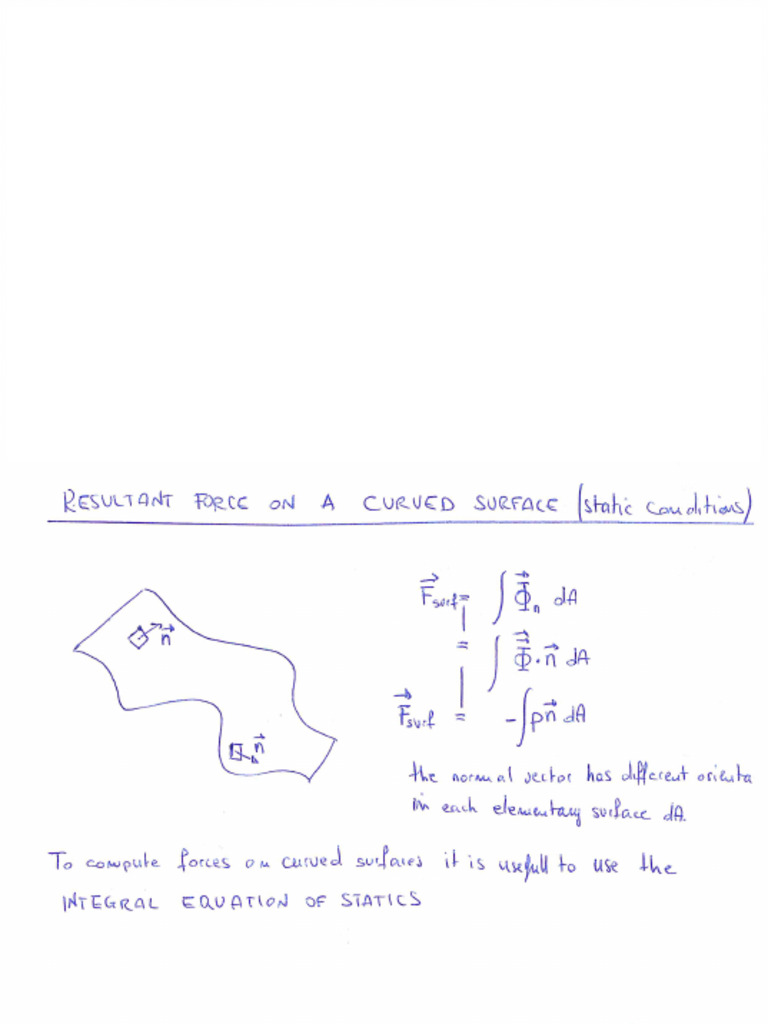 RESULTANT FORCE ON A CURVED SURFACE (static conditions)
n⃗
n⃗
F⃗surf = ∫ Φ⃗n dA
= ∫ Φ⃗⃗ · n⃗ dA
F⃗surf = -∫ p n⃗ dA
the normal vector has different orienta
in each elementary surface dA.
To compute forces on curved surfaces it is usefull to use the
INTEGRAL EQUATION OF STATICS